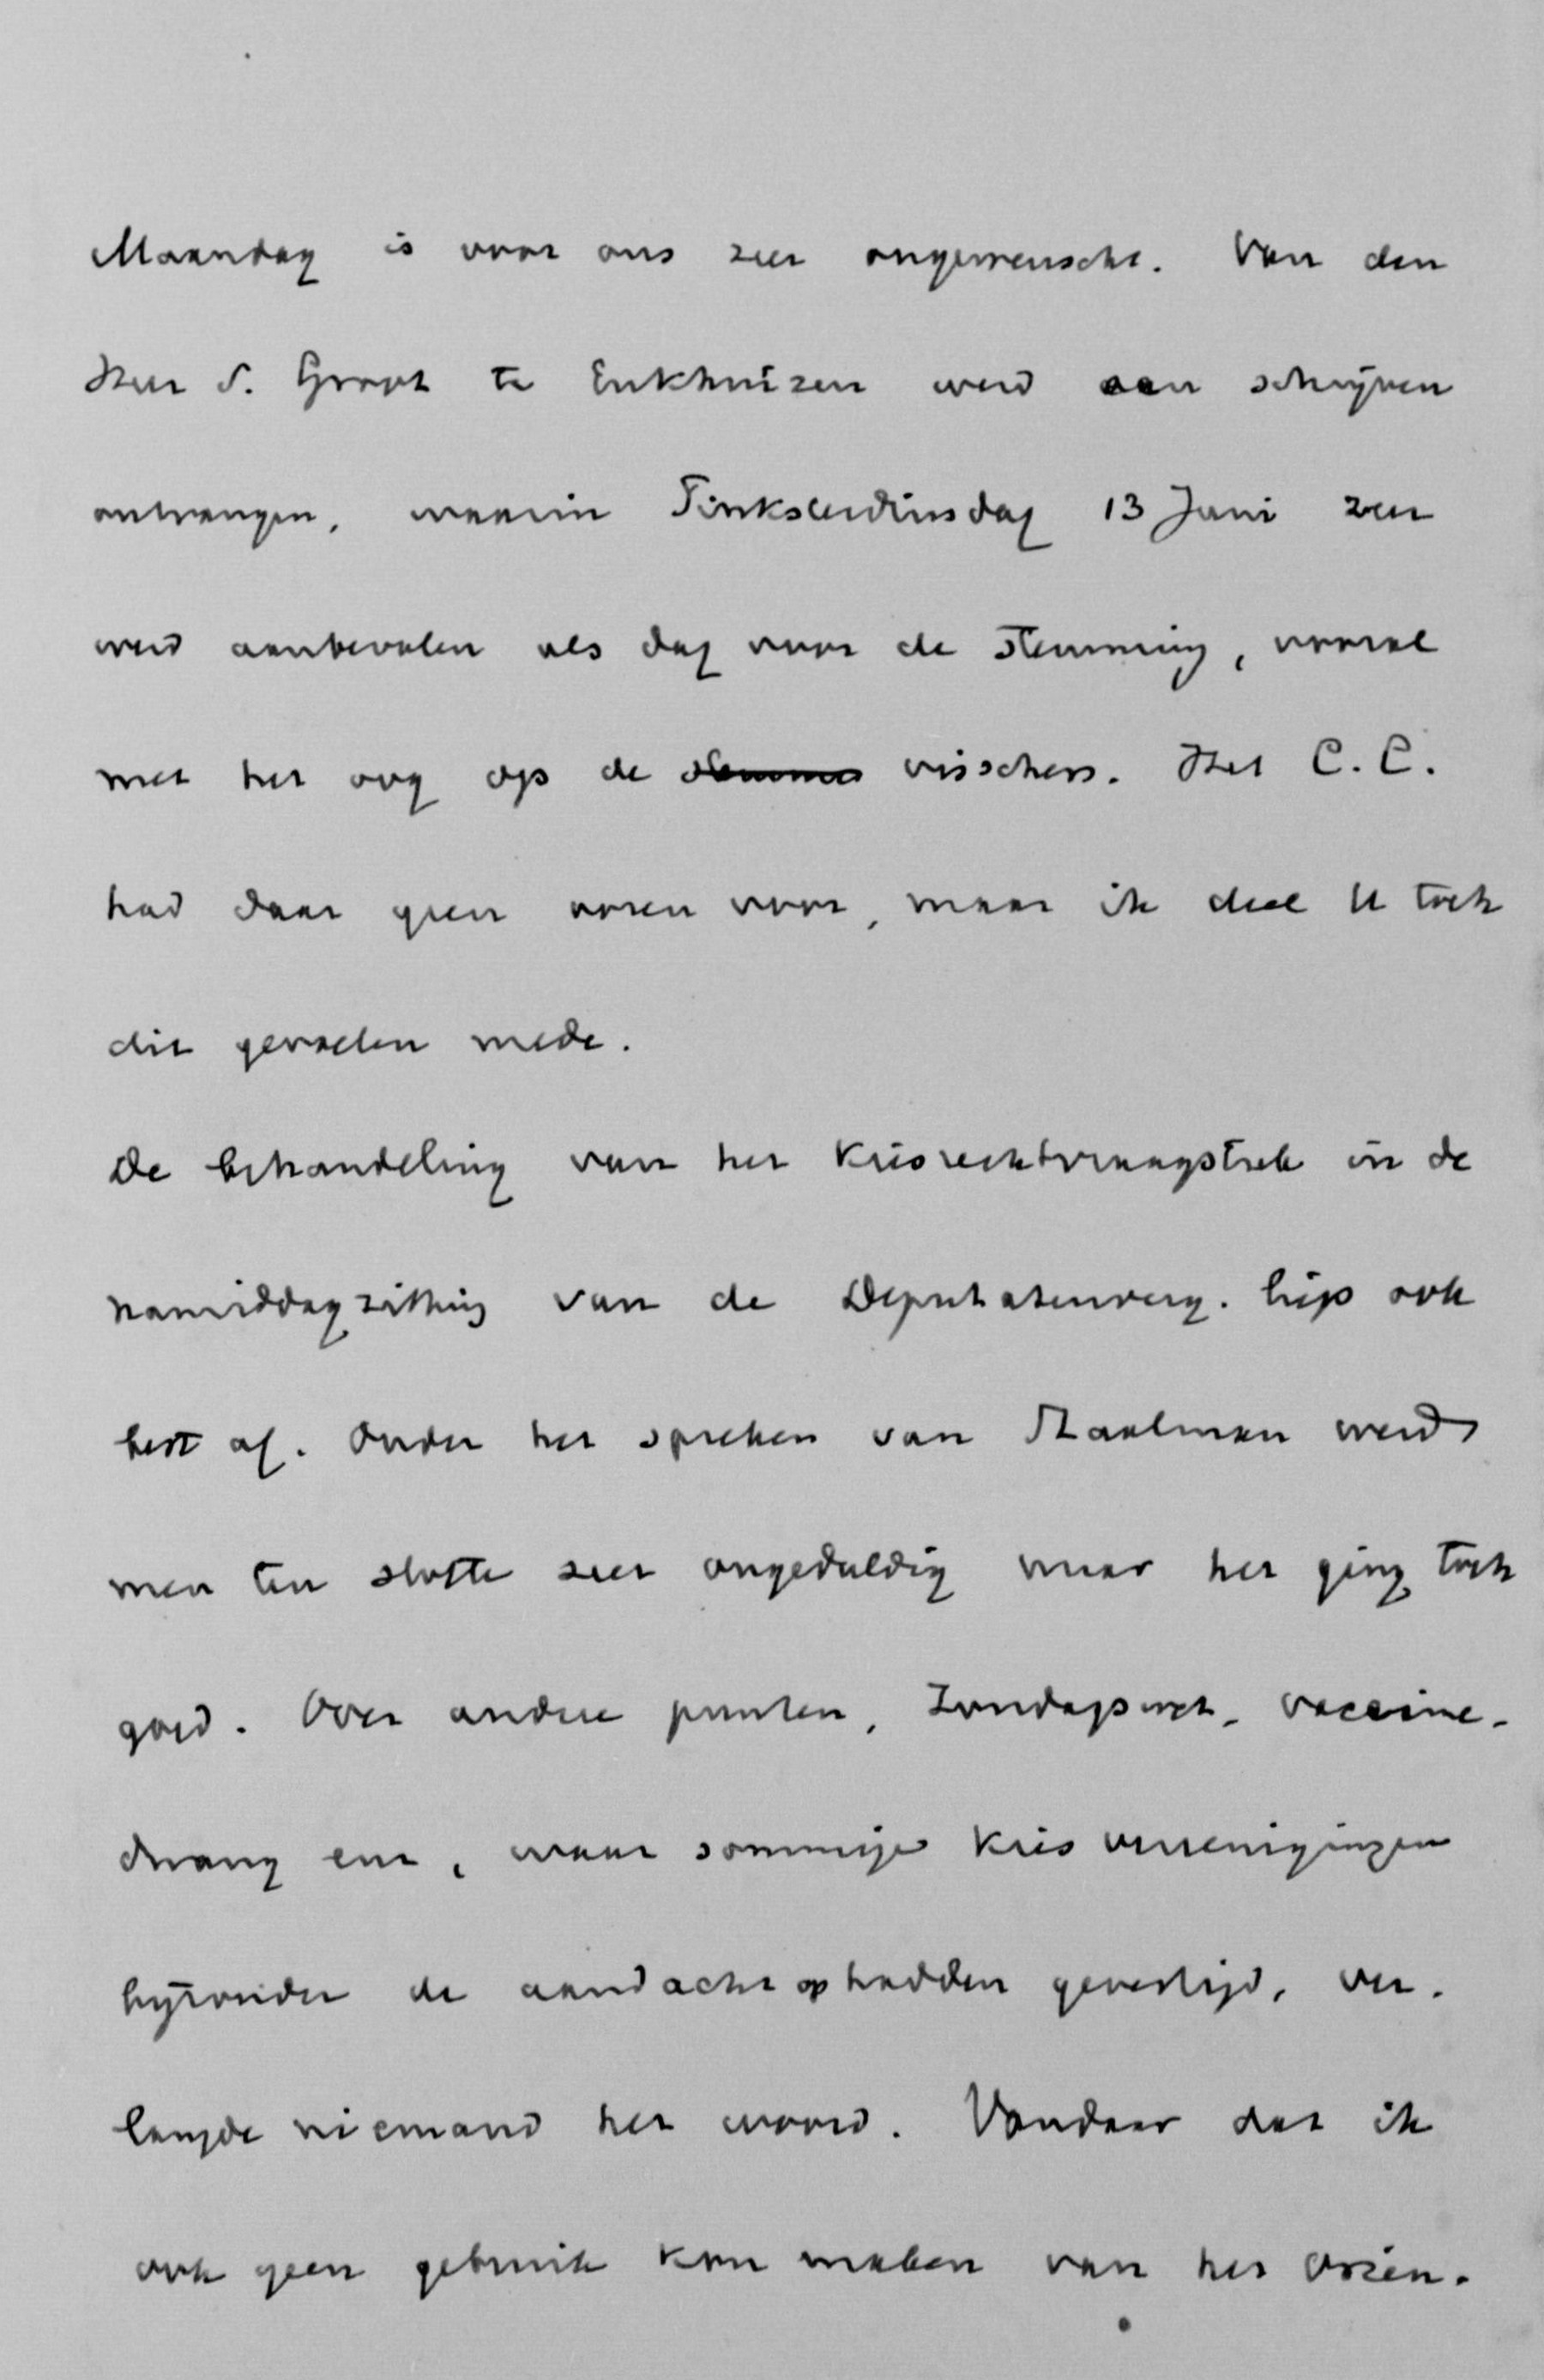 Maandag is voor ons zeer ongewenscht. Van den
Heer S. Groot te Enkhuizen werd een schrijven
ontvangen, waarin Pinksterdinsdag 13 Juni zeer
werd aanbevolen als dag voor de stemming, vooral
met het oog op de visschers. Het C.C.
had daar geen ooren voor, maar ik deel U toch
dit gevoelen mede.
De behandeling van het Kiesrechtvraagstuk in de
namiddagzitting van de Deputatenverg. liep ook
best af. Onder het spreken van Staalman werd
men ten slotte zeer ongeduldig maar het ging toch
goed. Over andere punten, Zondagswet, vaccine-
dwang enz, waar sommige Kiesvereenigingen
bijzonder de aandacht op hadden gevestigd, ver-
langde niemand het woord. Vandaar dat ik
ook geen gebruik kon maken van het